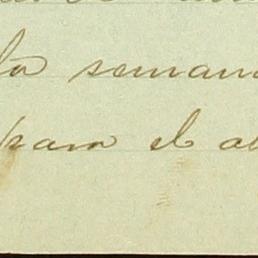 la semana
para el